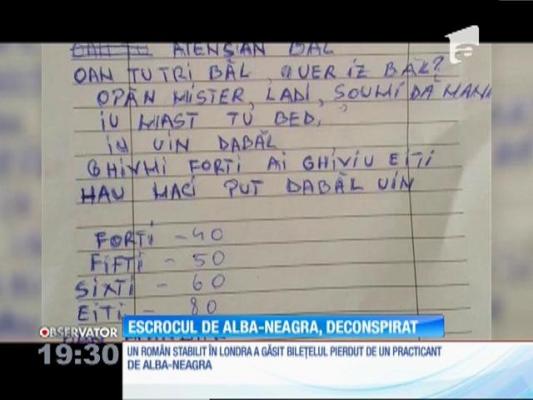 ATENȘAN BAL
OAN TU TRI BĂL, QUER IZ BAL?
OPĂN MISTER, LADI, ȘOUMI DA MANI
IU MAST TU BED,
IU UIN DABĂL
GHIVMI FORTI AI GHIVIU EITI
HAU MACI PUT DABĂL UIN
FORTI - 40
FIFTI - 50
SIXTI - 60
EITI - 80
OBSERVATOR
19:30
ESCROCUL DE ALBA-NEAGRA, DECONSPIRAT
UN ROMÂN STABILIT ÎN LONDRA A GĂSIT BILEȚELUL PIERDUT DE UN PRACTICANT
DE ALBA-NEAGRA